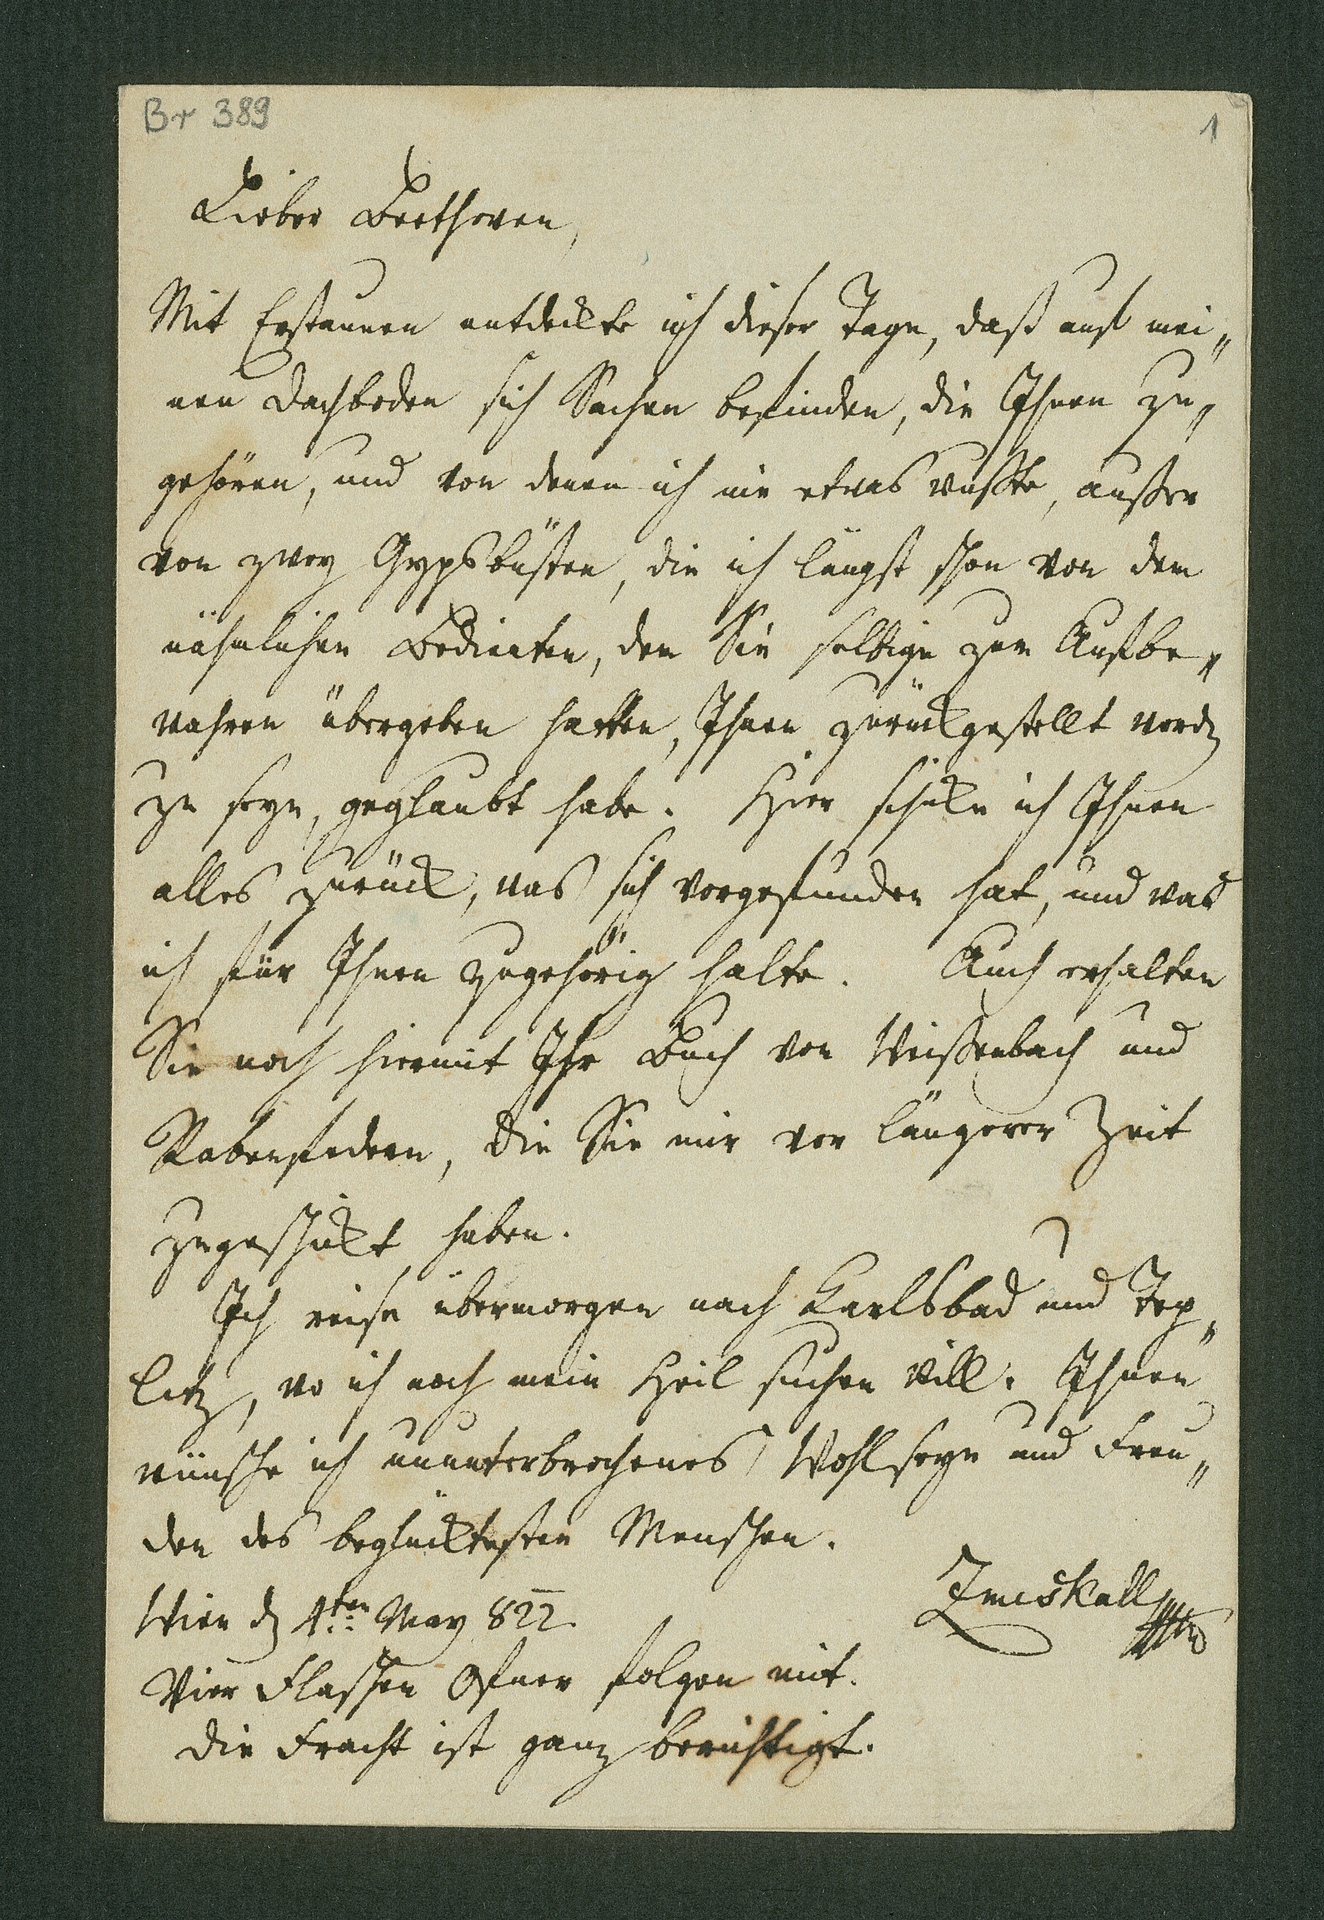 Br 389
1
Lieber Beethoven,
Mit Erstaunen entdeckte ich dieser Tage, daß auf mei„
nen Dachboden sich Sachen befinden, die Ihnen zu„
gehören, und von denen ich nie etwas wußte, außer
von zwey Gypsbüsten, die ich längst schon von dem
nähmlichen Bedienten, dem Sie selbige zum Aufbe„
wahren übergeben hatten, Ihnen zurückgestellt worden
zu seyn, geglaubt habe. Hier schicke ich Ihnen
alles zurück, was sich vorgefunden hat, und was
ich für Ihnen zugehörig halte. Auch erhalten
Sie noch hiermit Ihr Buch von Weißenbach und
Rabenfedern, die Sie mir vor längerer Zeit
zugeschickt haben.
Ich reise übermorgen nach Karlsbad und Tep„
litz, wo ich noch mein Heil suchen will. Ihnen
wünsche ich ununterbrochenes Wohlseyn und Freu„
den des beglücktesten Menschen.
Zmeskall
Wien den 4ten May 822
Vier Flaschen Ofner folgen mit.
Die Fracht ist ganz berichtigt.